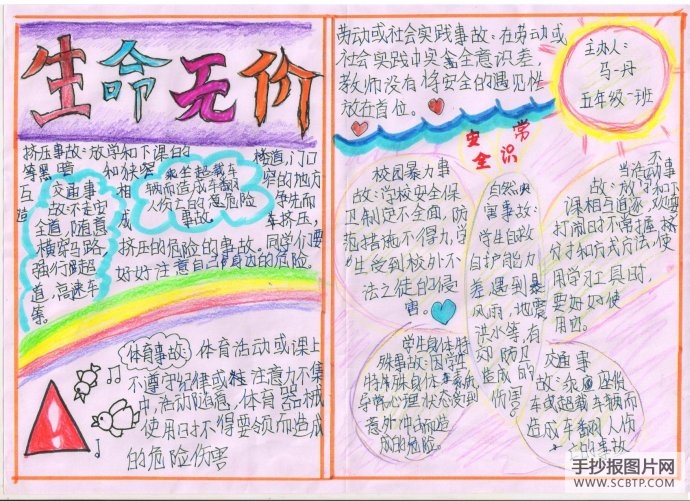 生命无价
挤压事故：放学和下课的
楼道，门口
等黑暗和狭窄
窄的地方
互相
争先而
造成
车挤压，
挤压的危险的事故。同学们要
好好注意自己身边的危险。
交通事
故：不走安
全道，随意
横穿马路，
强行超
道，高速车
等。
乘坐超载车
辆而造成车翻
人伤亡的危险
事故。
体育事故：体育活动或课上
不遵守纪律或注意力不集
中，活动随意，体育器械
使用时不得要领而造成
的危险伤害
劳动或社会实践事故：在劳动或
社会实践中安全意识差，
教师没有将安全的遇见性
放在首位。
主办人：
马丹
五年级一班
安全常识
校园暴力事
故：学校安全保
卫制定不全面，防
范措施不得力，学
生受到校外不
法之徒的侵
害。
自然灾
害事故：
学生自救
自护能力
差，遇到暴
风雨，地震
洪水等，有
动防卫
造成的
伤害。
不当活动事
故：放学和下
课相互追逐，欢
打闹时不常握
分寸和方式方法，使
用学习工具时，
要好好使
用
学生身体特
殊事故：因学生
特殊身体
导常心理状态受到
意外冲击而造
成的危险。
交通事
故：乘座
车或超载车辆而
造成车翻人伤
亡的事故
手抄报图片网
WWW.SCBTP.COM